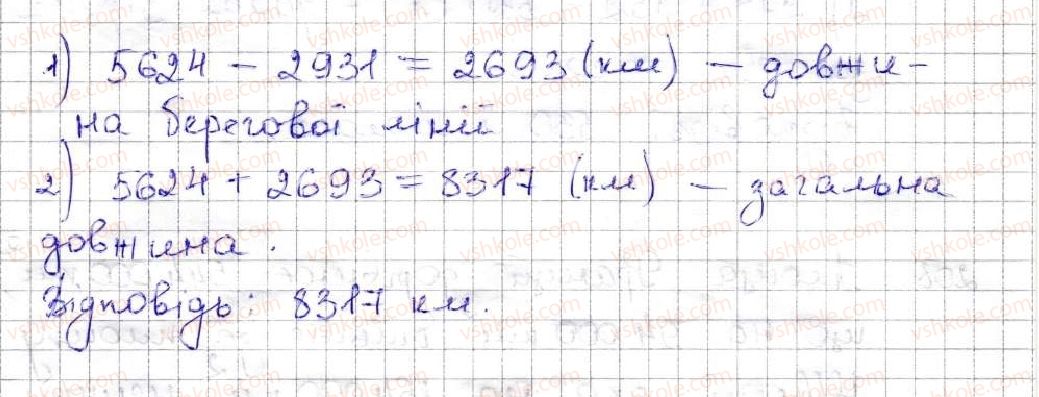 1) 5624 - 2931 = 2693 (км) - довжи-
на берегової лінії
2) 5624 + 2693 = 8317 (км) - загальна
довжина.
Відповідь: 8317 км.